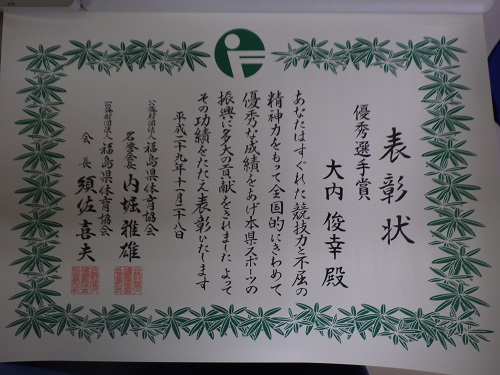 表彰状
優秀選手賞
大内俊幸殿
あなたはすぐれた競技力と不屈の
精神力をもって全国的にきわめて
優秀な成績をあげ本県スポーツの
振興に多大の貢献をされました よって
その功績をたたえ表彰いたします
平成二十九年十一月二十八日
公益財団法人福島県体育協会
名誉会長 内堀雅雄
公益財団法人福島県体育協会
会長 須佐喜夫